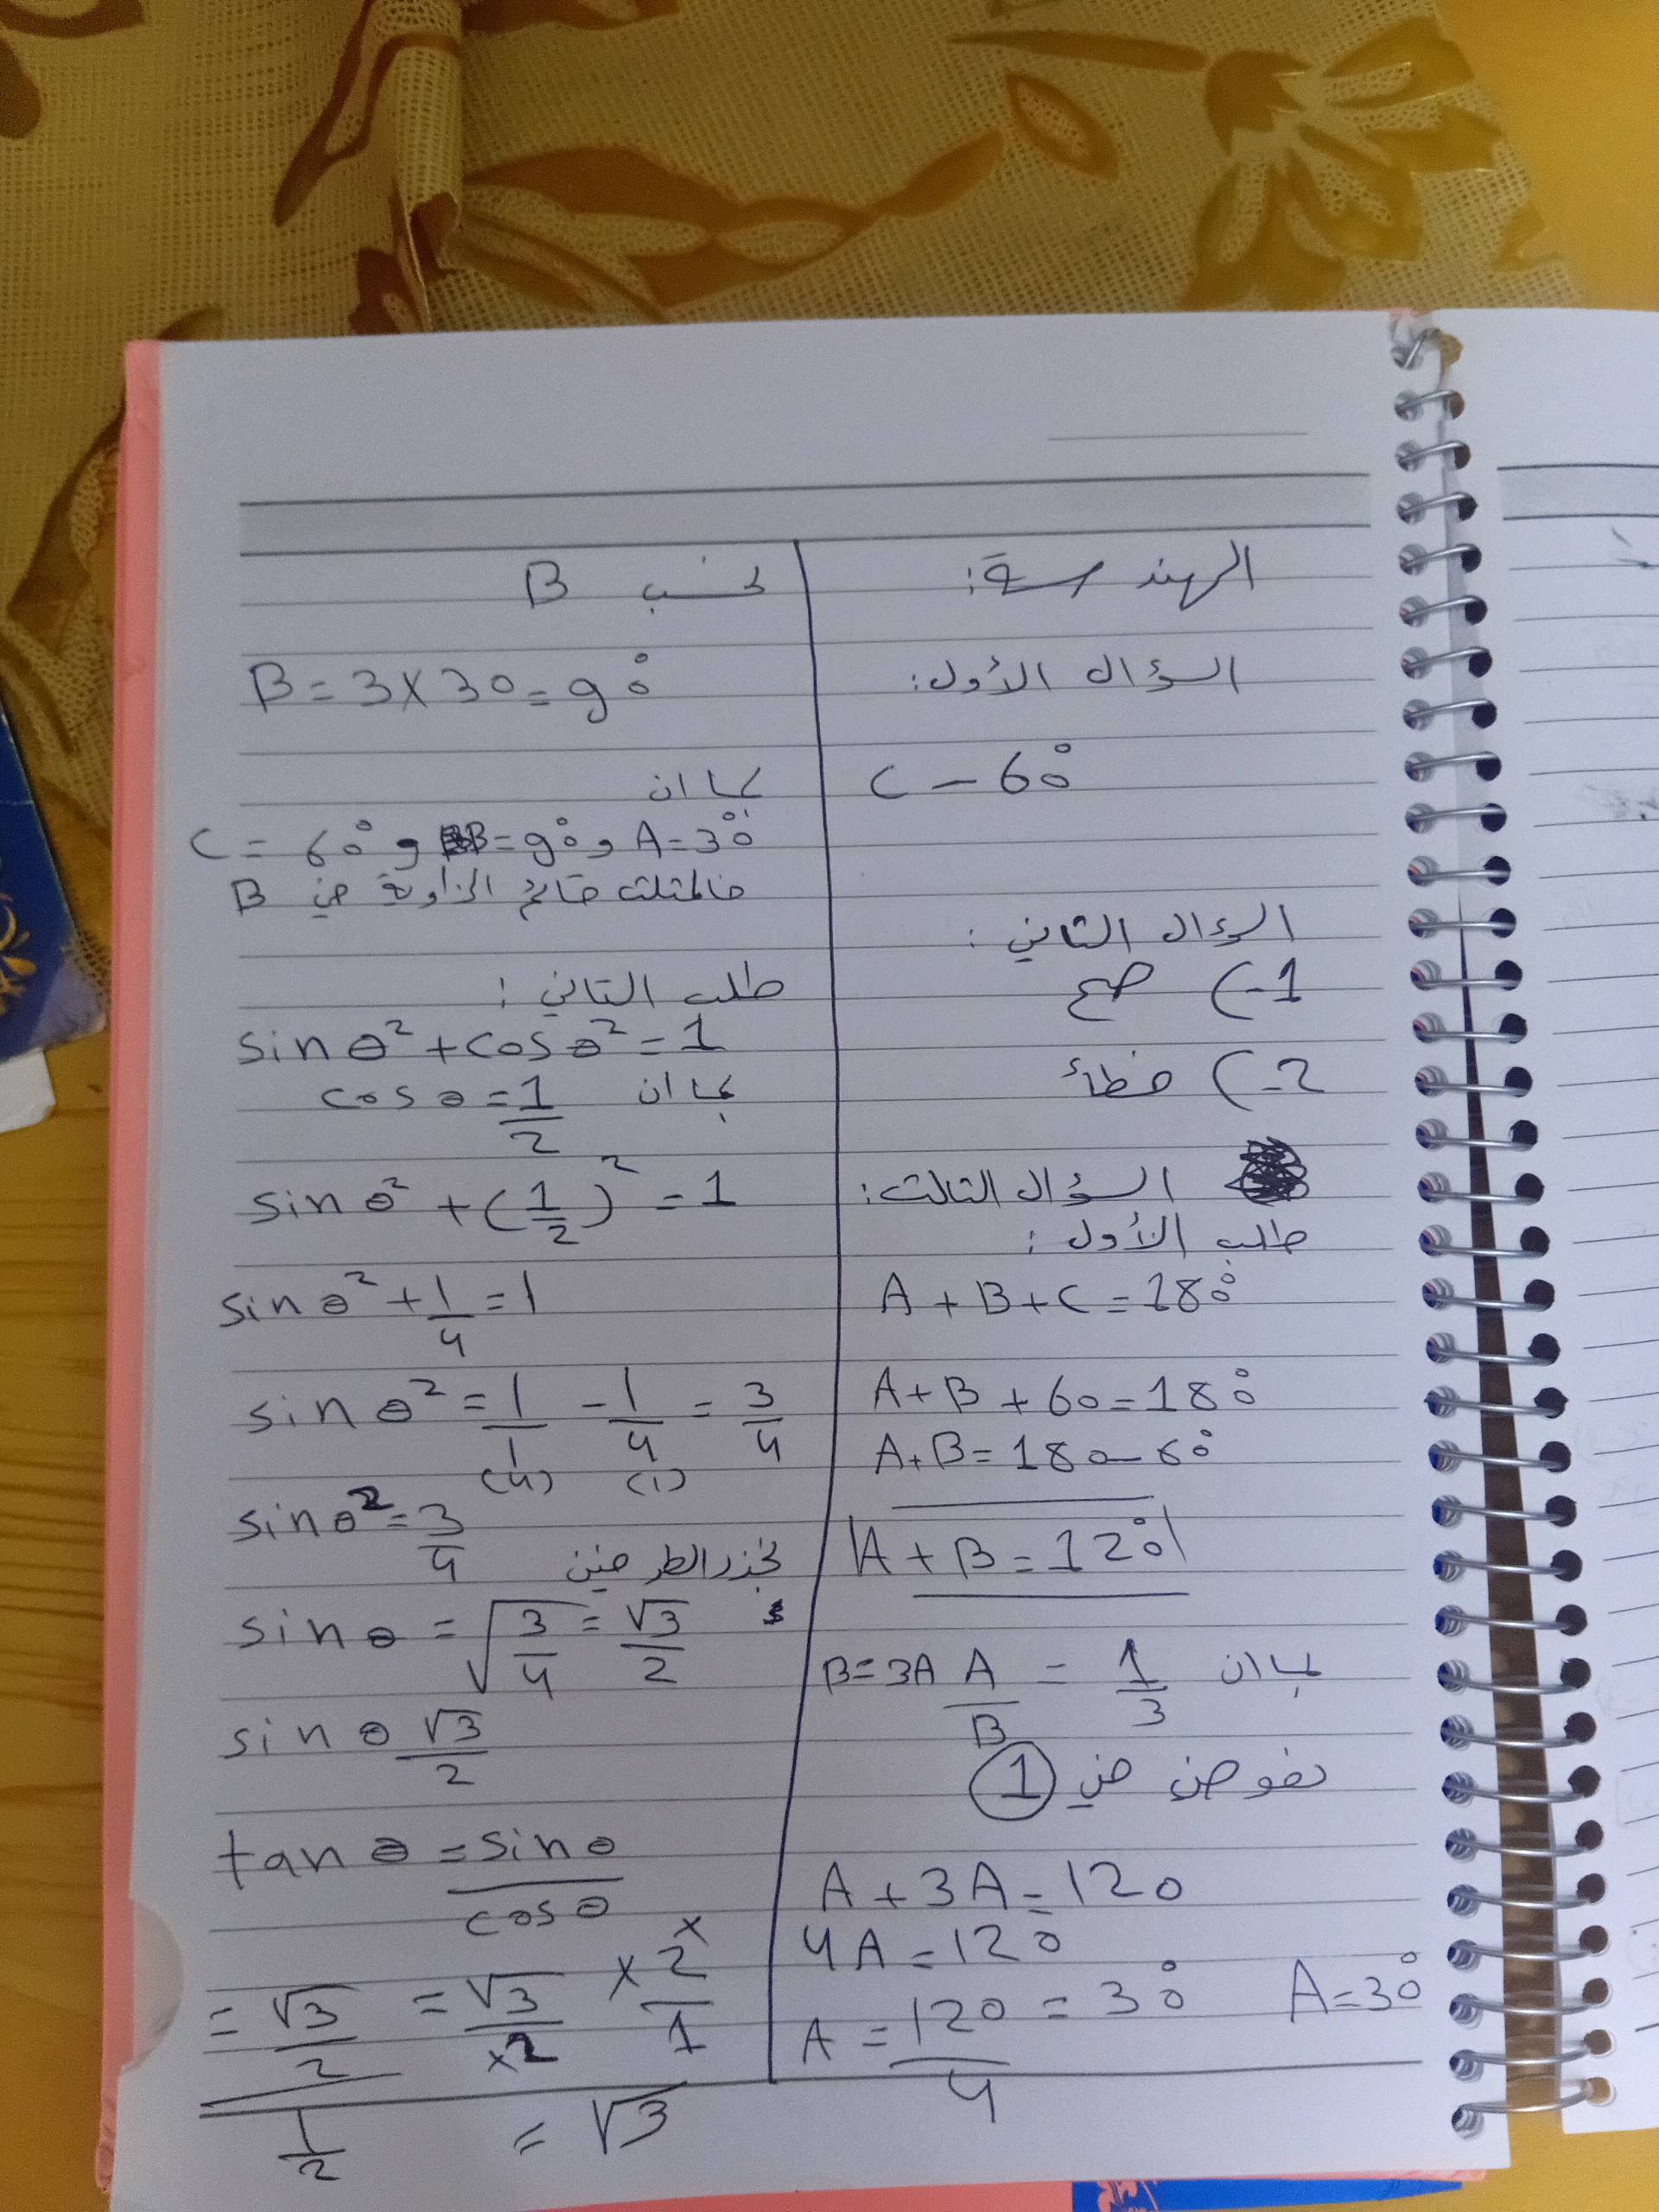 الهندسة:
السؤال الأول:
C - 60°
السؤال الثاني:
1-) صح
2-) خطأ
السؤال الثالث:
طلب الأول:
A + B + C = 180°
A + B + 60 = 180°
A + B = 180 - 60°
|A + B = 120°|
بما ان A/B = 1/3 B = 3A
نعوض في ①
A + 3A = 120
4A = 120
A = 120/4 = 30° A = 30°
نحسب B
B = 3 × 30 = 90°
بما ان
A = 30° و B = 90° و C = 60°
فالمثلث قائم الزاوية في B
طلب الثاني:
sin θ² + cos θ² = 1
بما ان cos θ = 1/2
sin θ² + (1/2)² = 1
sin θ² + 1/4 = 1
sin θ² = 1/1 - 1/4 = 3/4
(4) (1)
sin θ² = 3/4
نجذر الطرفين
sin θ = √3/4 = √3/2
sin θ √3/2
tan θ = sin θ/cos θ
= √3/2 / 1/2 = √3/×2 × 2×/1
= √3